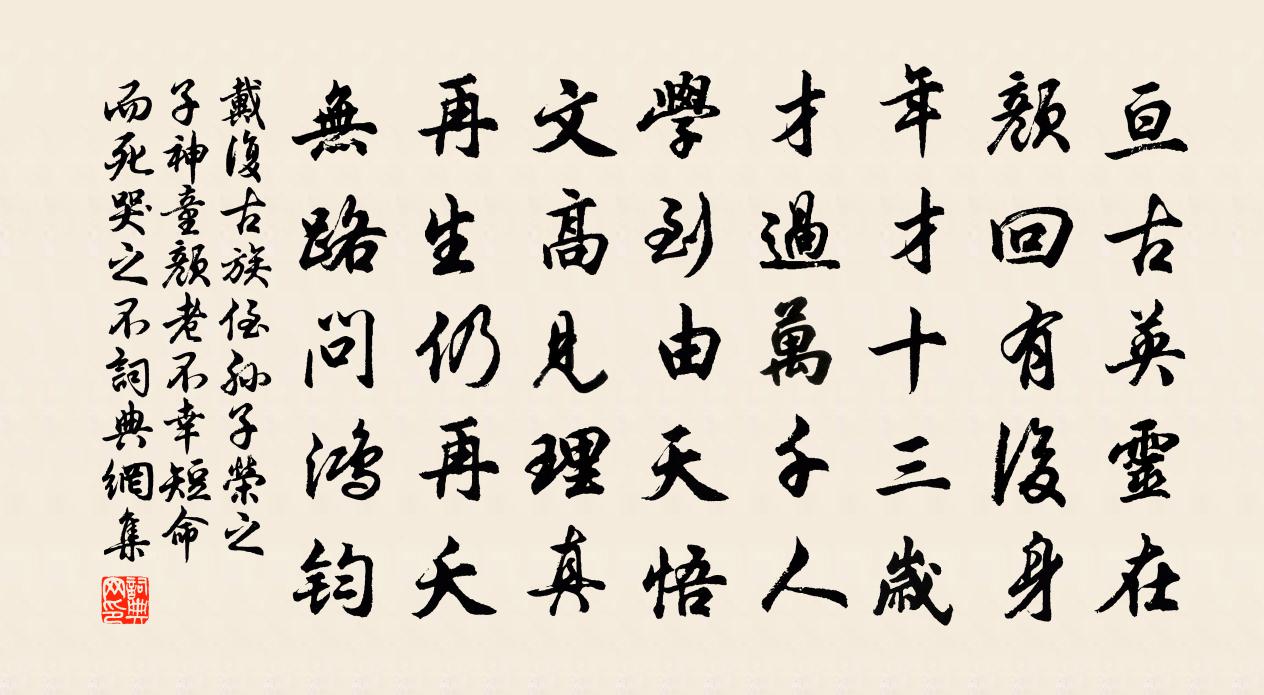 亘古英靈在
顏回有後身
年才十三歲
才過萬千人
學到由天悟
文高見理真
再生仍再夭
無路問鴻鈞
戴復古族侄孫子榮之
子神童顏老不幸短命
而死哭之不詞典網集
詞典
网印